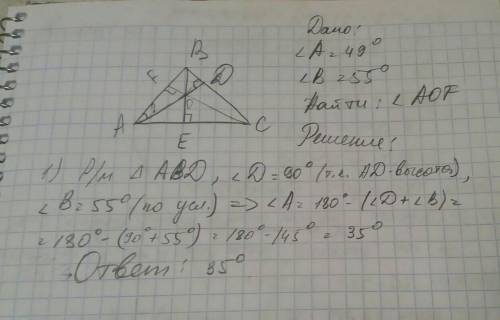 Дано:
∠A = 49°
∠B = 55°
Найти: ∠AOF
Решение:
B
F
D
O
A
E
C
1) Р/м △ ABD, ∠D = 90° (т.к. AD - высота),
∠B = 55° (по усл.) => ∠A = 180° - (∠D + ∠B) =
= 180° - (90° + 55°) = 180° - 145° = 35°
Ответ: 35°